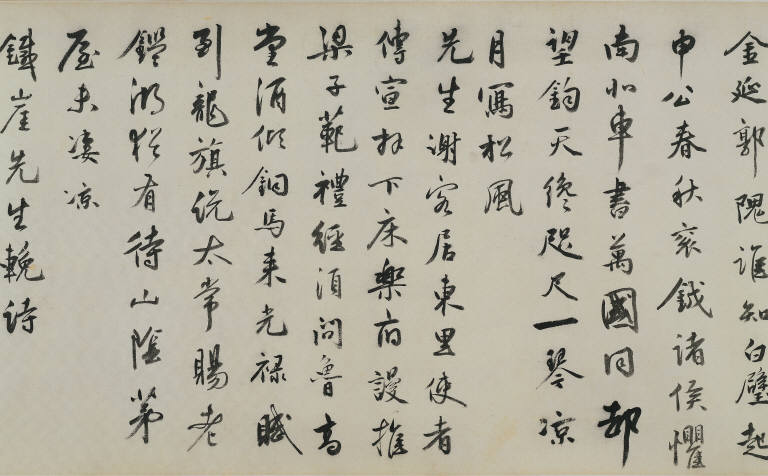 金延郭隗誰知白璧起
申公春秋袞鉞諸侯懼
南北車書萬國同都
望鈞天纔咫尺一琴凉
月寫松風
先生謝客居東里使者
傳宣拜下床樂府謾推
梁子範禮經須問魯高
堂酒傾銅馬来光禄賦
到龍旗説太常賜老
鑑湖猶有待山陰茅
屋未凄凉
鐵崖先生輓詩